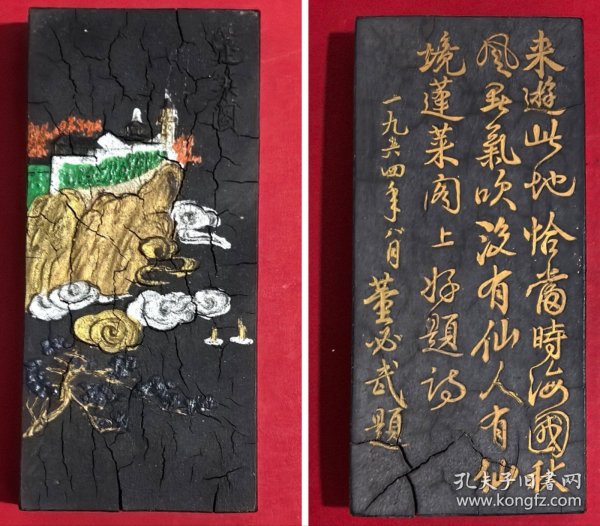 来遊此地恰當時海國秋
风暑氣吹没有仙人有仙
境蓬莱阁上好題诗
一九六四年八月 董必武題
孔夫子旧书网
www.kongfz.com